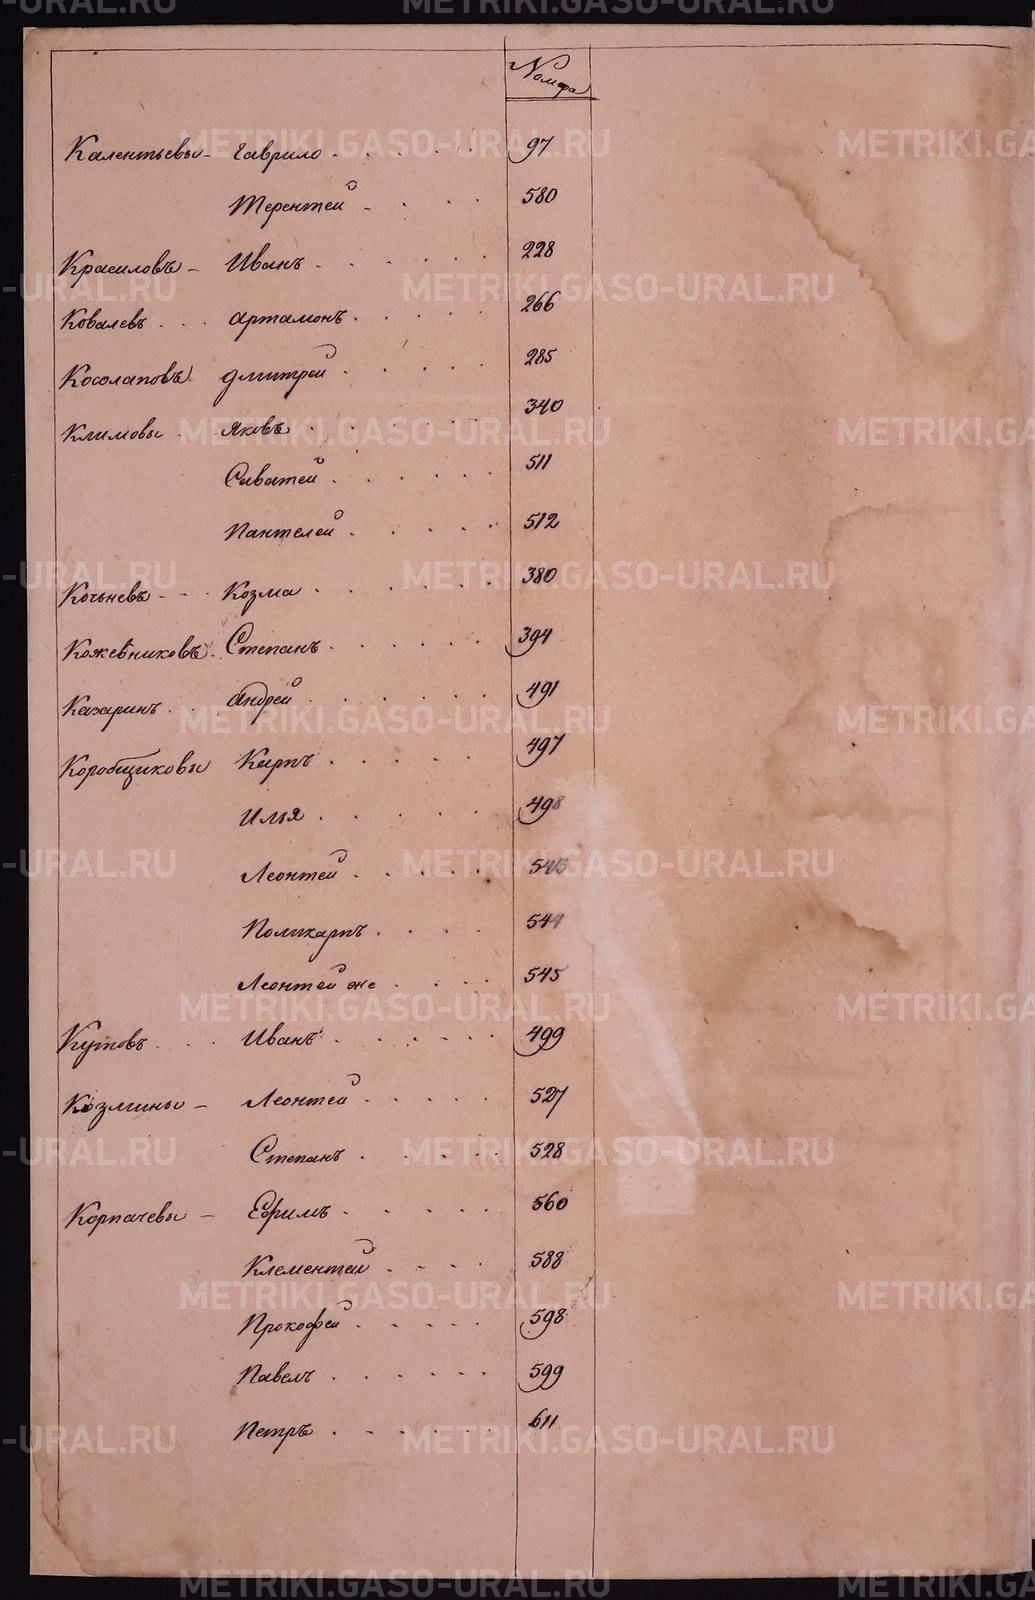 Номера
Калентьевы - Гаврило . . . . . 97
Терентей - . . . 580
Красиловъ - Иванъ . . . . . . 228
Ковалевъ . . . Артамонъ . . . . . 266
Косолаповъ Дмитрей . . . . . 285
Климовы . Яковъ . . . . . . 340
Саватей . . . . . . 511
Пантелей . . . . . 512
Кочьневъ - - . Козма . . . . . . 380
Кожевниковъ . Степанъ . . . . . . 394
Казаринъ . . . Андрей . . . . . . 491
Коробщиковы Карпъ . . . . . . 497
Илья . . . . . 498
Леонтей . . . . . 543
Поликарпъ . . . . 544
Леонтей же . . . . 545
Кутовъ . . . Иванъ . . . . . . 499
Козмины - Леонтей . . . . . 527
Степанъ . . . . . 528
Корпачевы - Ефимъ . . . . . 560
Клементей . . . . 588
Прокофей . . . . . 598
Павелъ . . . . . . 599
Петръ . . . . . . 611
METRIKI.GASO-URAL.RU